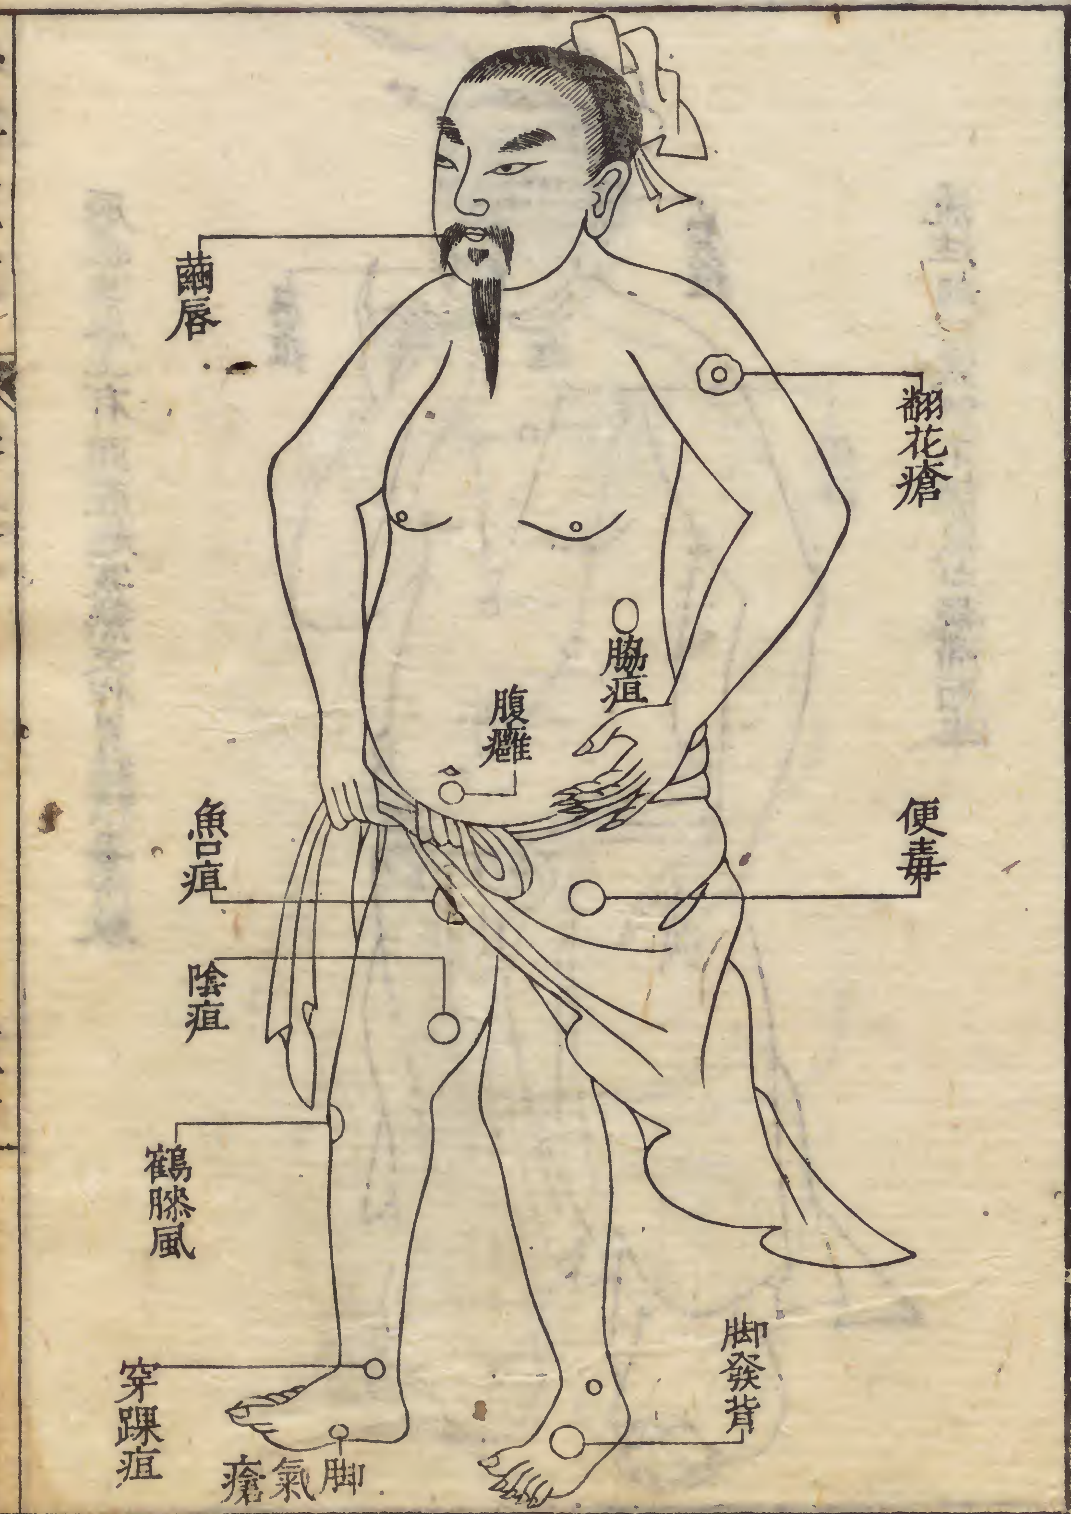 繭唇
翻花瘡
脇疽
腹癰
魚口疽
便毒
陰疽
鶴膝風
脚發背
穿踝疽
脚氣瘡